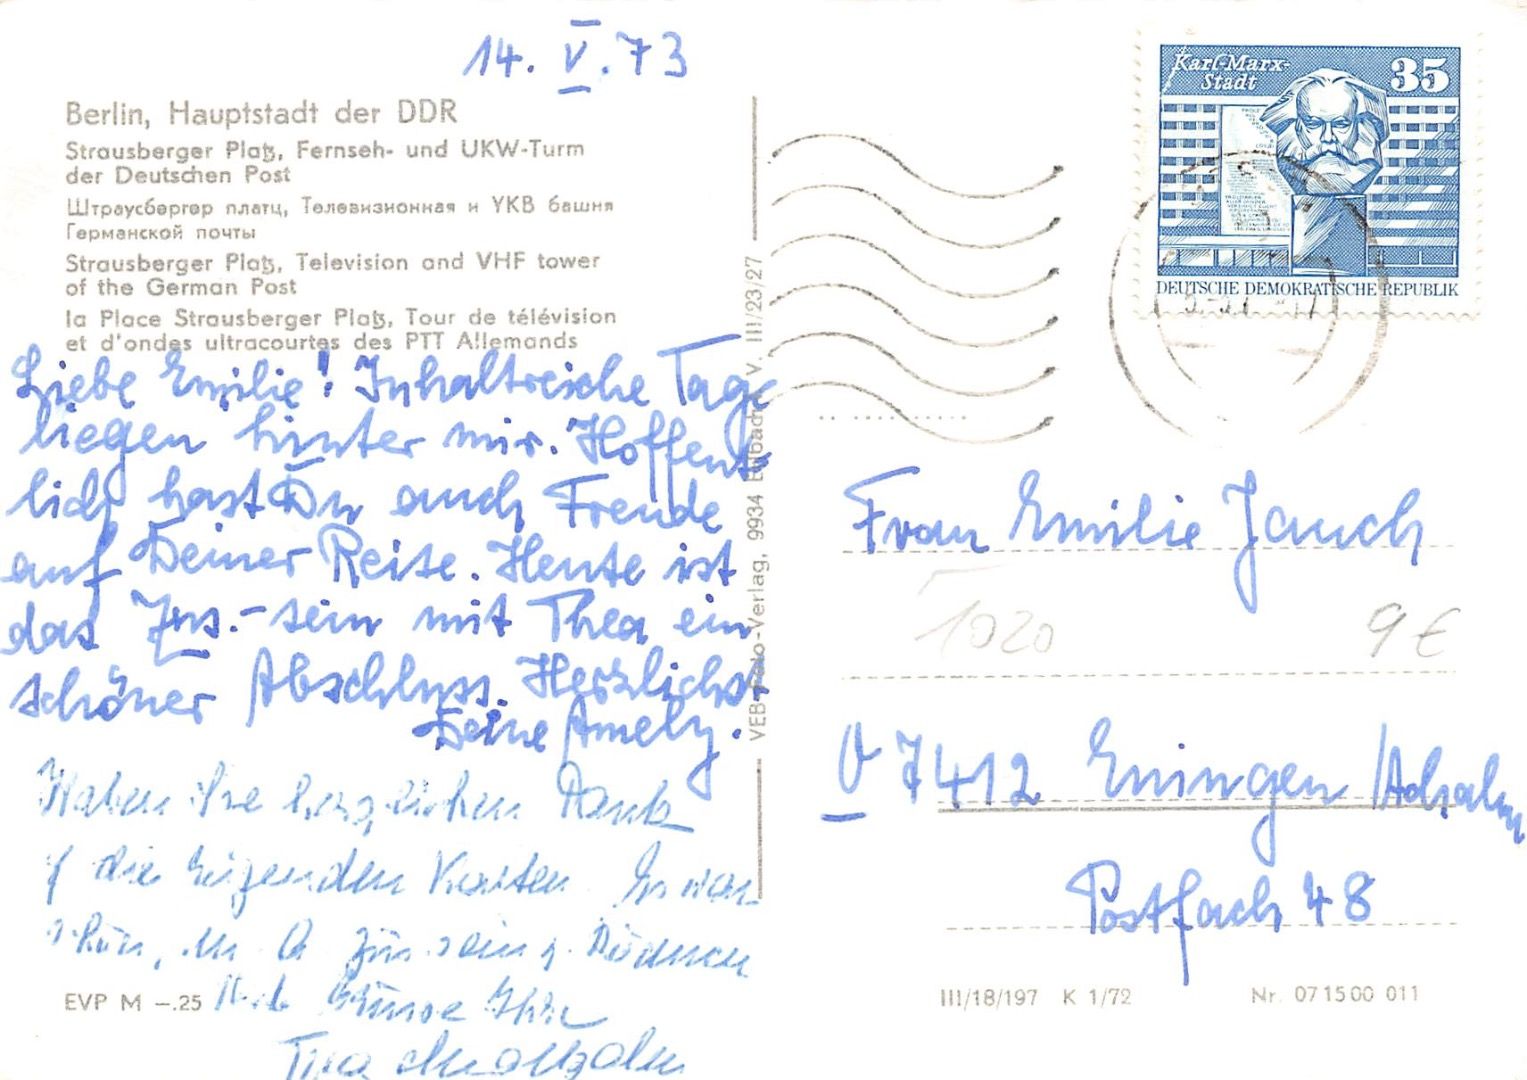 14. V. 73
Berlin, Hauptstadt der DDR
Strausberger Platz, Fernseh- und UKW-Turm
der Deutschen Post
Штраусбергер платц, Телевизионная и УКВ башня
Германской почты
Strausberger Platz, Television and VHF tower
of the German Post
la Place Strausberger Platz, Tour de télévision
et d'ondes ultracourtes des PTT Allemands
Liebe Emilie! Inhaltreiche Tage
liegen hinter mir. Hoffent-
lich hast Du auch Freude
auf Deiner Reise. Heute ist
das Zus.-sein mit Thea ein
schöner Abschluss. Herzlichst
Deine Amely.
Haben Sie herzlichen Dank
f die Karten. Es war
schön, in
Grüsse Ihre
Thea
EVP M –.25
VEB Verlag, 9934 V. III/23/27
Karl-Marx-
Stadt
35
DEUTSCHE DEMOKRATISCHE REPUBLIK
Frau Emilie Jauch
1020 9€
V 7412 Eningen/Achalm
Postfach 48
III/18/197 K 1/72 Nr. 07 15 00 011